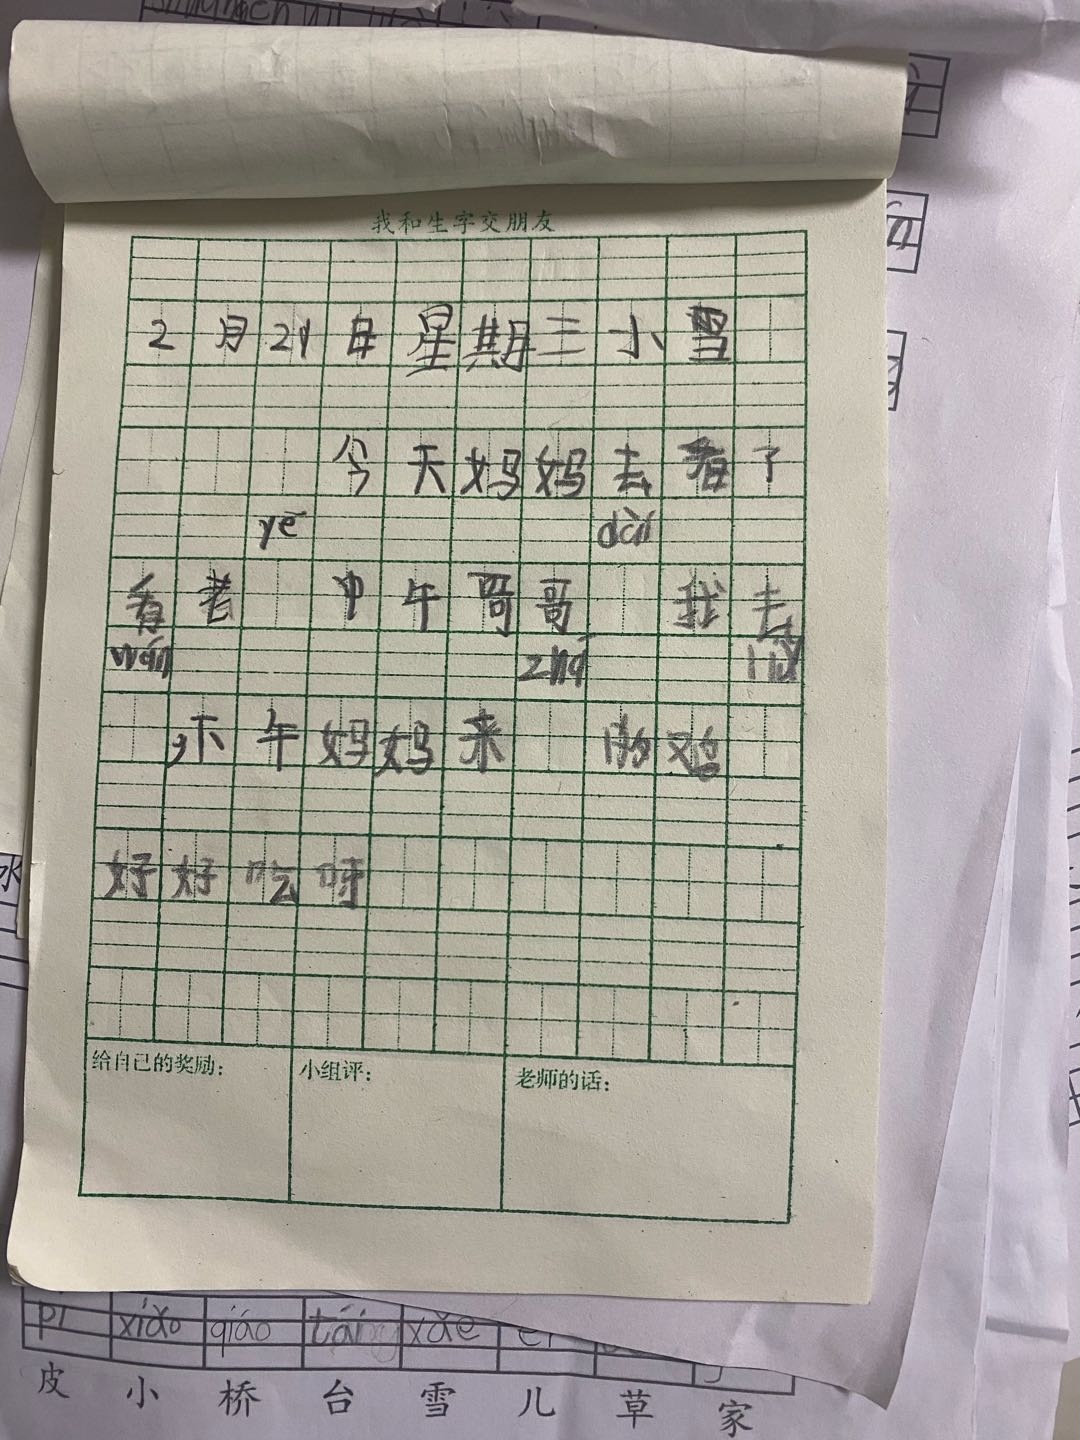 我和生字交朋友
2月21日星期三小雪
今天妈妈去看了
yě dài
看老 中午哥哥 我去
wán zhá
下午妈妈来 的鸡
好好吃呀
给自己的奖励：
小组评：
老师的话：
pí xiǎo qiáo tái xǎe
皮 小 桥 台 雪 儿 草 家